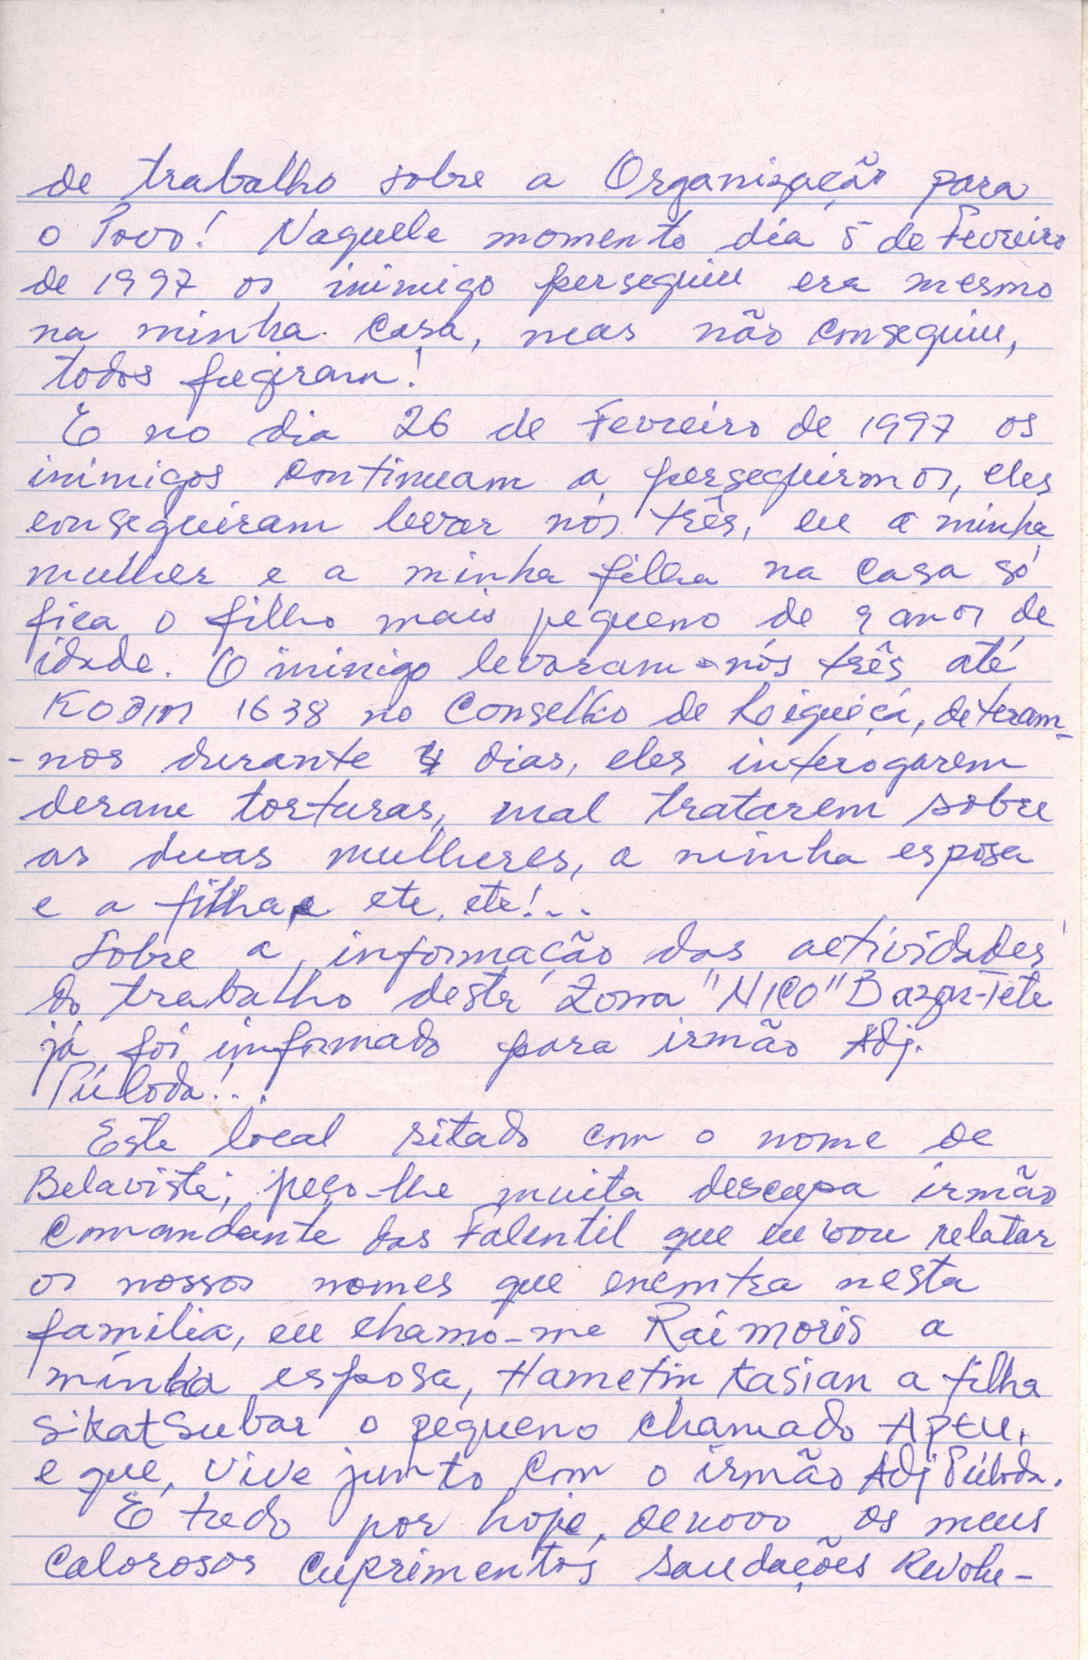 de trabalho sobre a Organização para
o Povo! Naquele momento dia 5 de Fevreiro
de 1997 os inimigo perseguiu era mesmo
na minha casa, mas não conseguiu,
todos fugiram!
E no dia 26 de Fevreiro de 1997 os
inimigos continuam a perseguirmos, eles
conseguiram levar nós três, eu a minha
mulher e a minha filha na casa só
fica o filho mais pequeno de 9 anos de
idade. O inimigo levaram-nós três até
KODIM 1638 no Conselho de Loiquiçá, deteram-
-nos durante 4 dias, eles interogarem
derame torturas, mal tratarem sobre
as duas mulheres, a minha esposa
e a filha, e etc, etc!...
Sobre a informação das actividades
do trabalho desta Zona "NICO" Bazar-Tete
já foi informado para irmão Adj.
Píloda!...
Este local sitado com o nome de
Belavista; peço-lhe muita descupa irmão
Comandante das Falentil que eu vou relatar
os nossos nomes que encontra nesta
familia, eu chamo-me Raimoris a
minha esposa, Hametin Kasian a filha
Sikat Subar o pequeno chamado Apeu,
e que, vive junto com o irmão Adj Píloda.
E tudo por hoje, denovo os meus
Calorosos cuprimentos saudações Revolu-